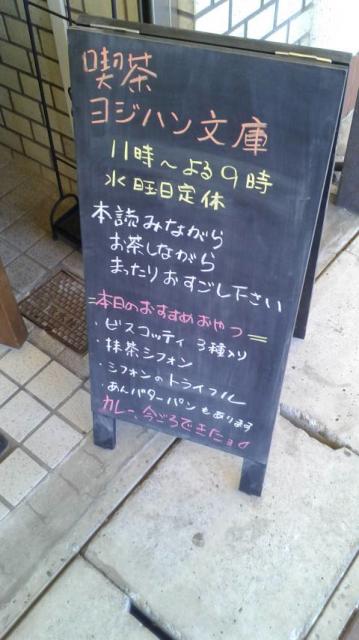 喫茶
ヨジハン文庫
11時～よる9時
水曜日定休
本読みながら
お茶しながら
まったりおすごし下さい
=本日のおすすめおやつ=
・ビスコッティ 3種入り
・抹茶シフォン
・シフォンのトライフル
・あんバターパンもあります
カレー、今ごろできたョ♂